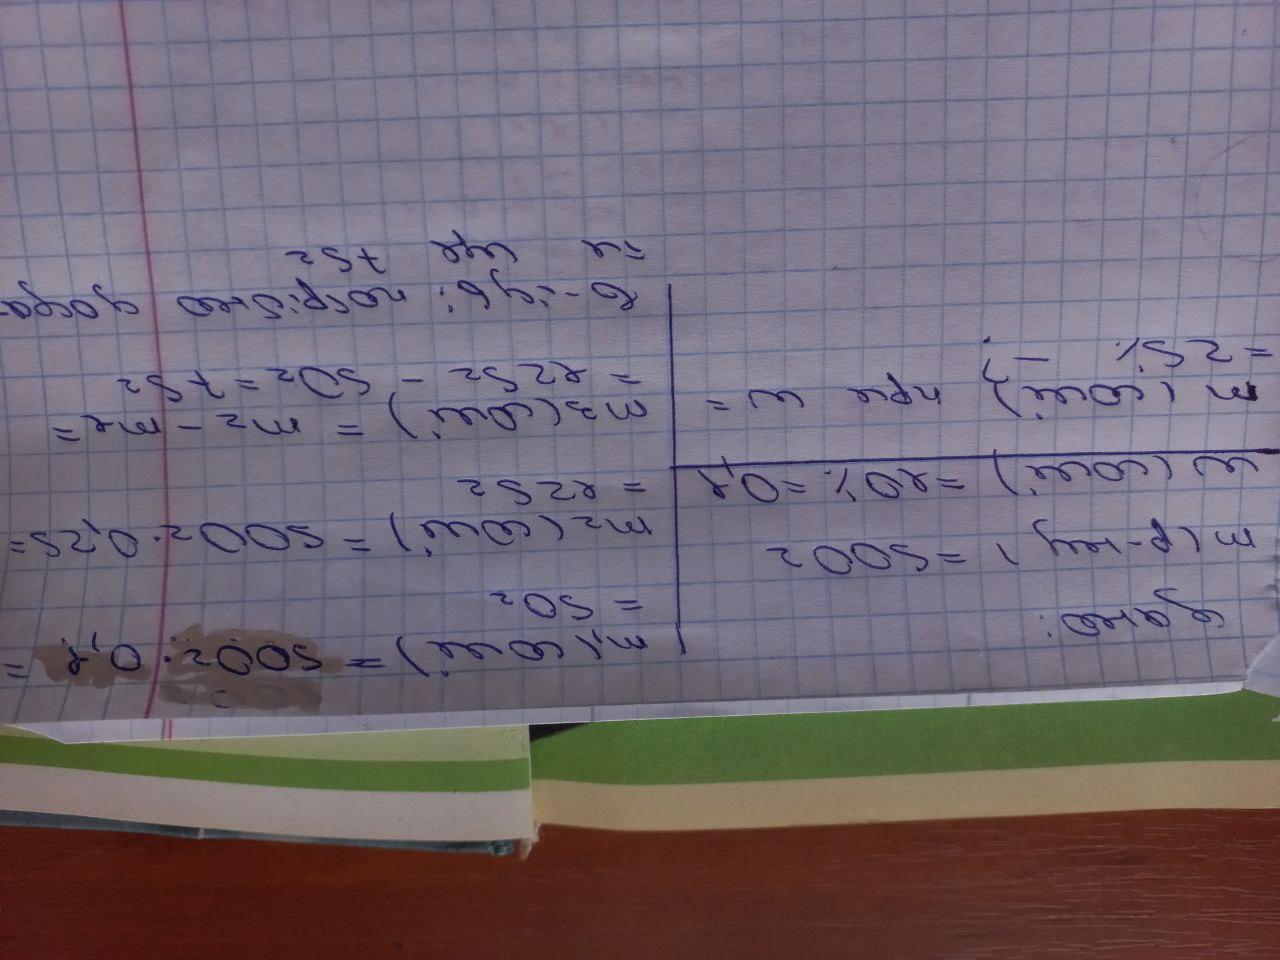 Дано:
m(р-ну) = 500г
w(солі) = 10% = 0,1
m(солі) при w =
= 25% - ?
m1(солі) = 500г · 0,1 =
= 50г
m2(солі) = 500г · 0,25 =
= 125г
m3(солі) = m2 - m1 =
= 125г - 50г = 75г
В-ідь: потрібно дода-
75г